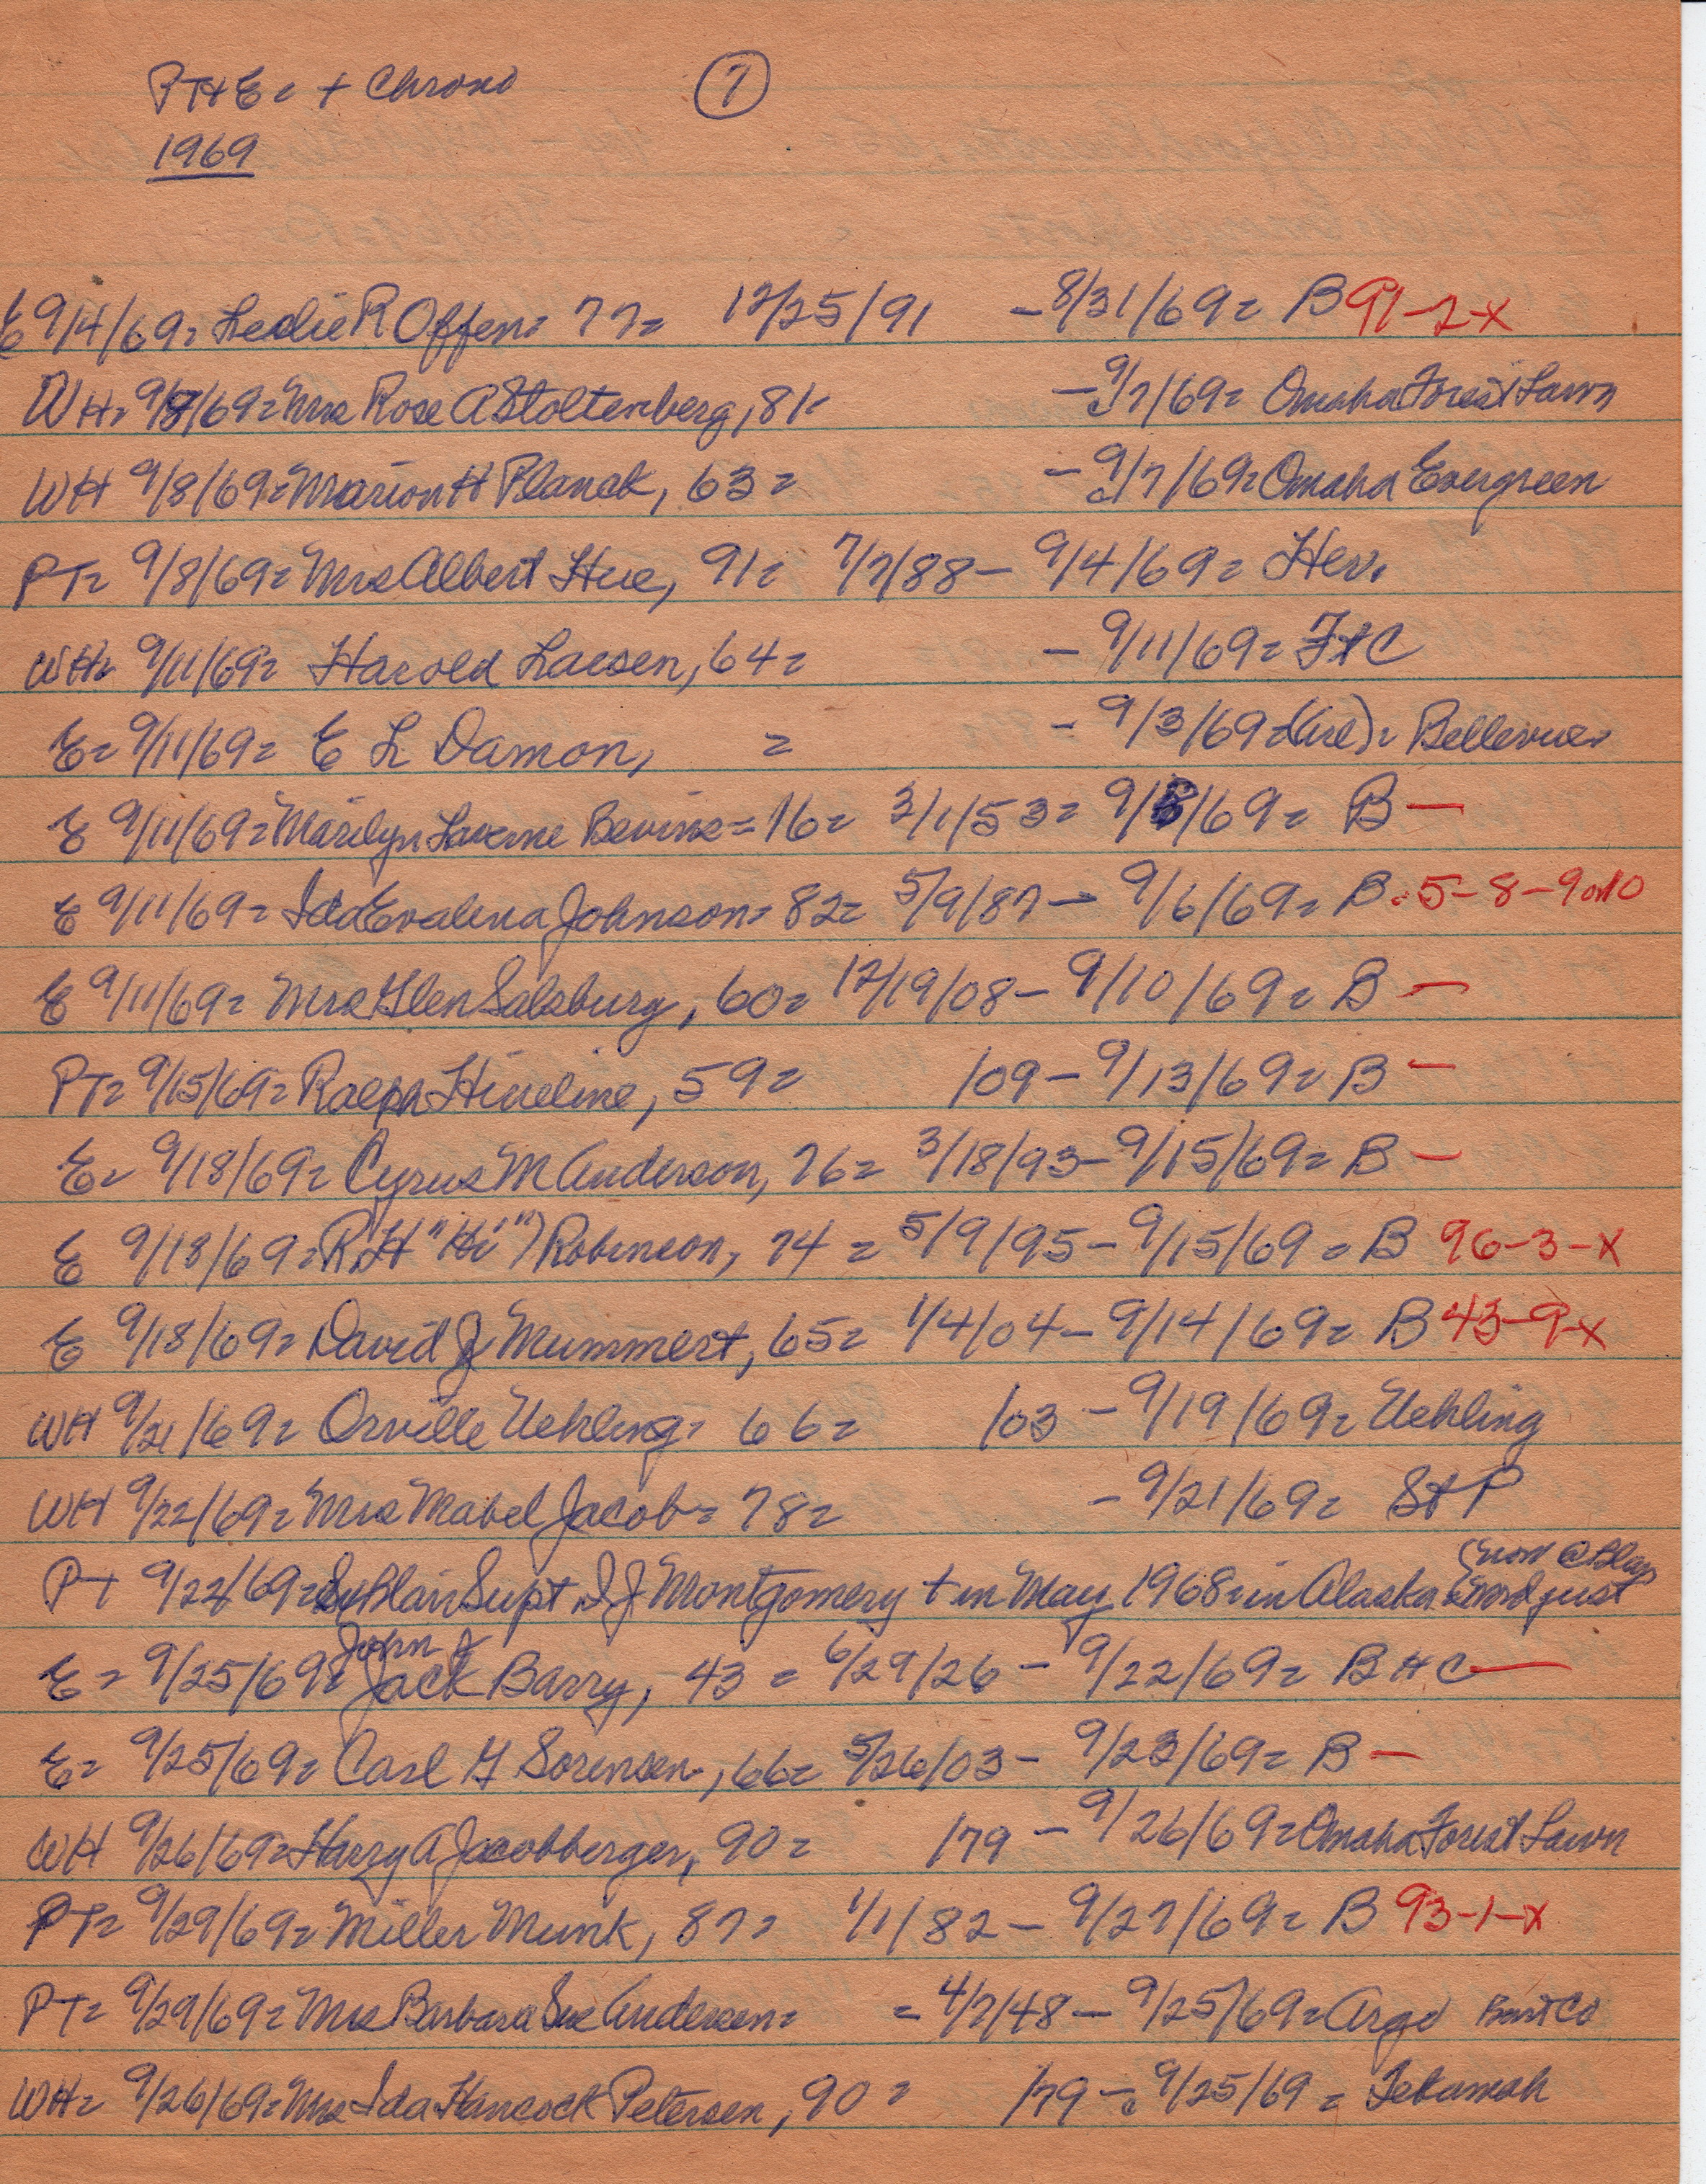 PT + E = + Chrono 7
1969
E 9/4/69 = Leslie R Offen = 77 = 12/25/91 - 8/31/69 = B 91-2-x
WH = 9/8/69 = Mrs Rose A Stoltenberg, 81 - - 9/7/69 = Omaha Forest Lawn
WH 9/8/69 = Marion H Planck, 63 = - 9/7/69 = Omaha Evergreen
PT = 9/8/69 = Mrs Albert Hue, 91 = 7/7/88 - 9/4/69 = Her.
WH = 9/11/69 = Harold Larsen, 64 = - 9/11/69 = Ft C
E = 9/11/69 = E L Damon, = - 9/3/69 = = Bellevue
E 9/11/69 = Marilyn Laverne Bevins = 16 = 3/1/53 = 9/8/69 = B —
E 9/11/69 = Ida Evalena Johnson = 82 = 5/9/87 - 9/6/69 = B. 5-8-9 or 10
E 9/11/69 = Mrs Glen Salsburg, 60 = 12/19/08 - 9/10/69 = B —
PT = 9/15/69 = Ralph Hineline, 59 = /09 - 9/13/69 = B —
E = 9/18/69 = Cyrus M Anderson, 76 = 3/18/93 - 9/15/69 = B —
E 9/18/69 = R H "Hi") Robinson, 74 = 5/9/95 - 9/15/69 = B 96-3-x
E 9/18/69 = David J Mummert, 65 = 1/4/04 - 9/14/69 = B 43-9-x
WH 9/21/69 = Orville Uehling = 66 = /03 - 9/19/69 = Uehling
WH 9/22/69 = Mrs Mabel Jacob = 78 = - 9/21/69 = St P
(now @ Blair
PT 9/22/69 = Blair Supt I J Montgomery + in May 1968 = in Alaska. just
John J
E = 9/25/69 = Jack Barry, 43 = 6/29/26 - 9/22/69 = B H C —
E = 9/25/69 = Carl G Sorensen, 66 = 5/26/03 - 9/23/69 = B —
WH 9/26/69 = Harry A Jacobberger, 90 = /79 - 9/26/69 = Omaha Forest Lawn
PT = 9/29/69 = Miller Munk, 87 = 1/1/82 - 9/27/69 = B 93-1-x
PT = 9/29/69 = Mrs Barbara Sue Andersen = = 4/7/48 - 9/25/69 = Argo Burt Co
WH = 9/26/69 = Mrs Ida Hancock Petersen, 90 = /79 - 9/25/69 = Tekamah